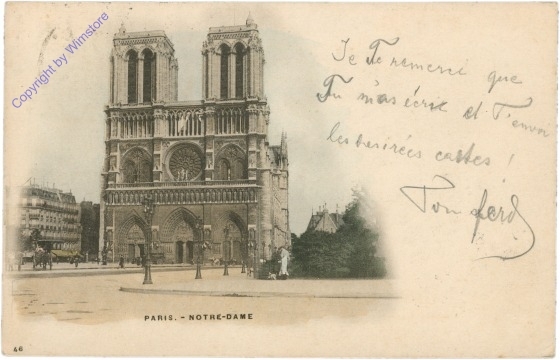 Copyright by Wimstore
Je Te remerci que
Tu m'as écrit et T'envoi
les desirées cartes !
Ton ferd
PARIS. - NOTRE-DAME
46